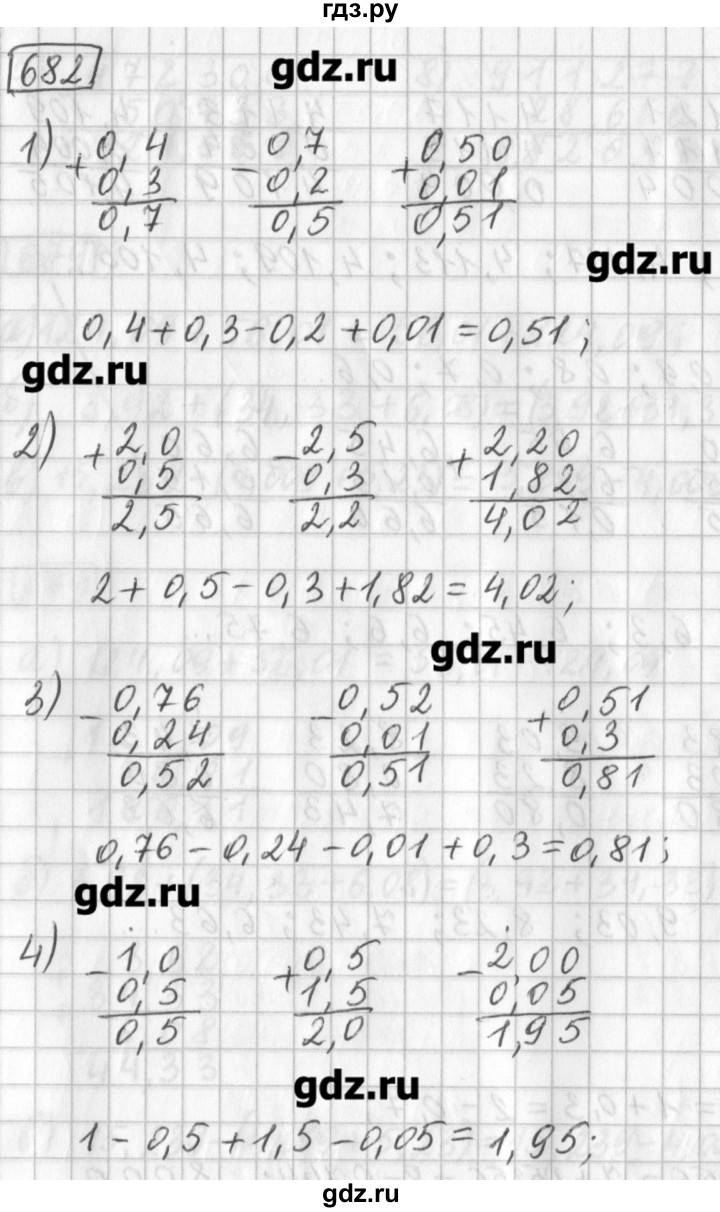 гдз.ру
682
gdz.ru
1) + 0,4 - 0,7 + 0,50
0,3 0,2 0,01
0,7 0,5 0,51
gdz.ru
0,4+0,3-0,2+0,01=0,51;
gdz.ru
2) + 2,0 - 2,5 + 2,20
0,5 0,3 1,82
2,5 2,2 4,02
2+0,5-0,3+1,82=4,02;
gdz.ru
3) - 0,76 - 0,52 + 0,51
0,24 0,01 0,3
0,52 0,51 0,81
0,76-0,24-0,01+0,3=0,81;
gdz.ru
4) - 1,0 + 0,5 - 2,00
0,5 1,5 0,05
0,5 2,0 1,95
gdz.ru
1-0,5+1,5-0,05=1,95;
gdz.ru